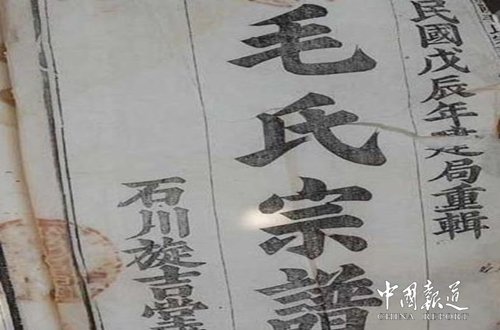 民國戊辰年建局重輯
毛氏宗譜
石川旋吉堂
中国報道
CHINA REPORT